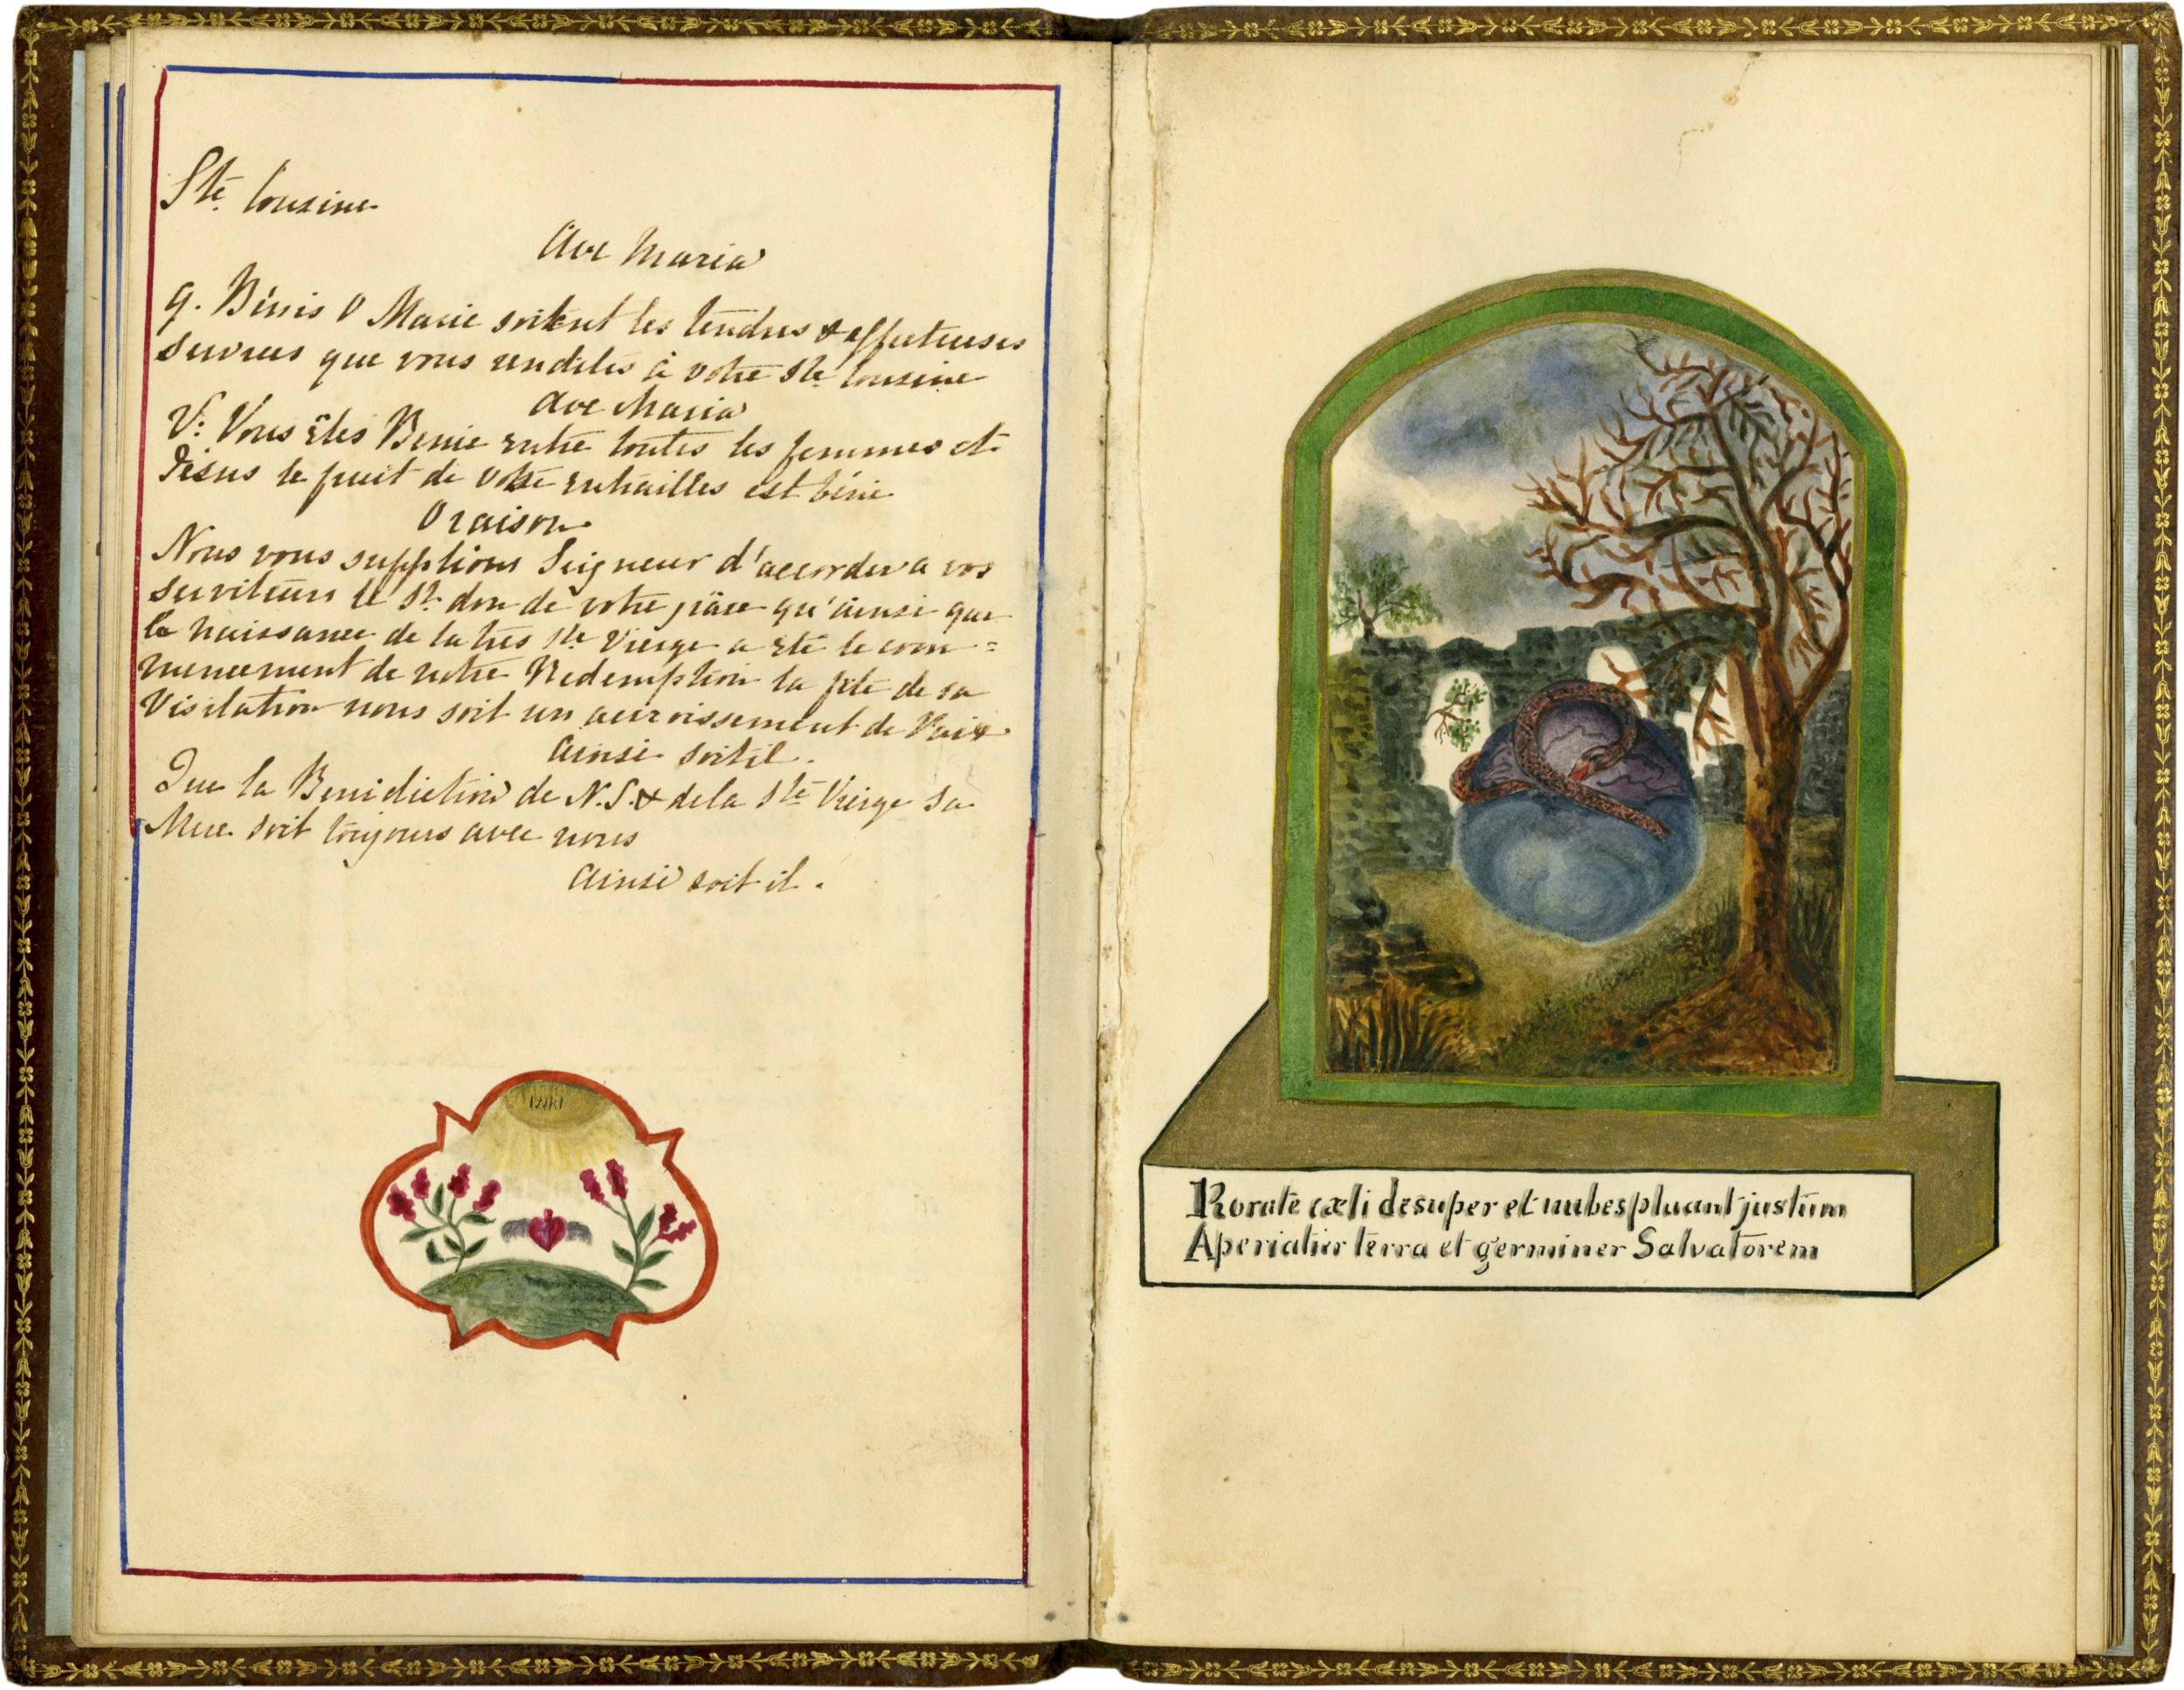 Ste Cousine
Ave Maria
9. Bénis O Marie soitent les tendres & affectueuses
services que vous rendites à votre Ste Cousine
Ave Maria
V: Vous êtes Benie entre toutes les femmes et
Jésus le fruit de votre entrailles est béni
Oraison
Nous vous supplions Seigneur d'accorder a vos
serviteurs le St don de votre grâce qu'ainsi que
la naissance de la très Ste Vierge a eté le com=
mencement de notre Redemption la fête de sa
Visitation nous soit un accroissement de Paix
Ainsi soit il.
Que la Benediction de N.S. & de la Ste Vierge sa
Mere soit toujours avec nous
Ainsi soit il.
Rorate cæli desuper et nubes pluant justum
Aperiatur terra et germiner Salvatorem